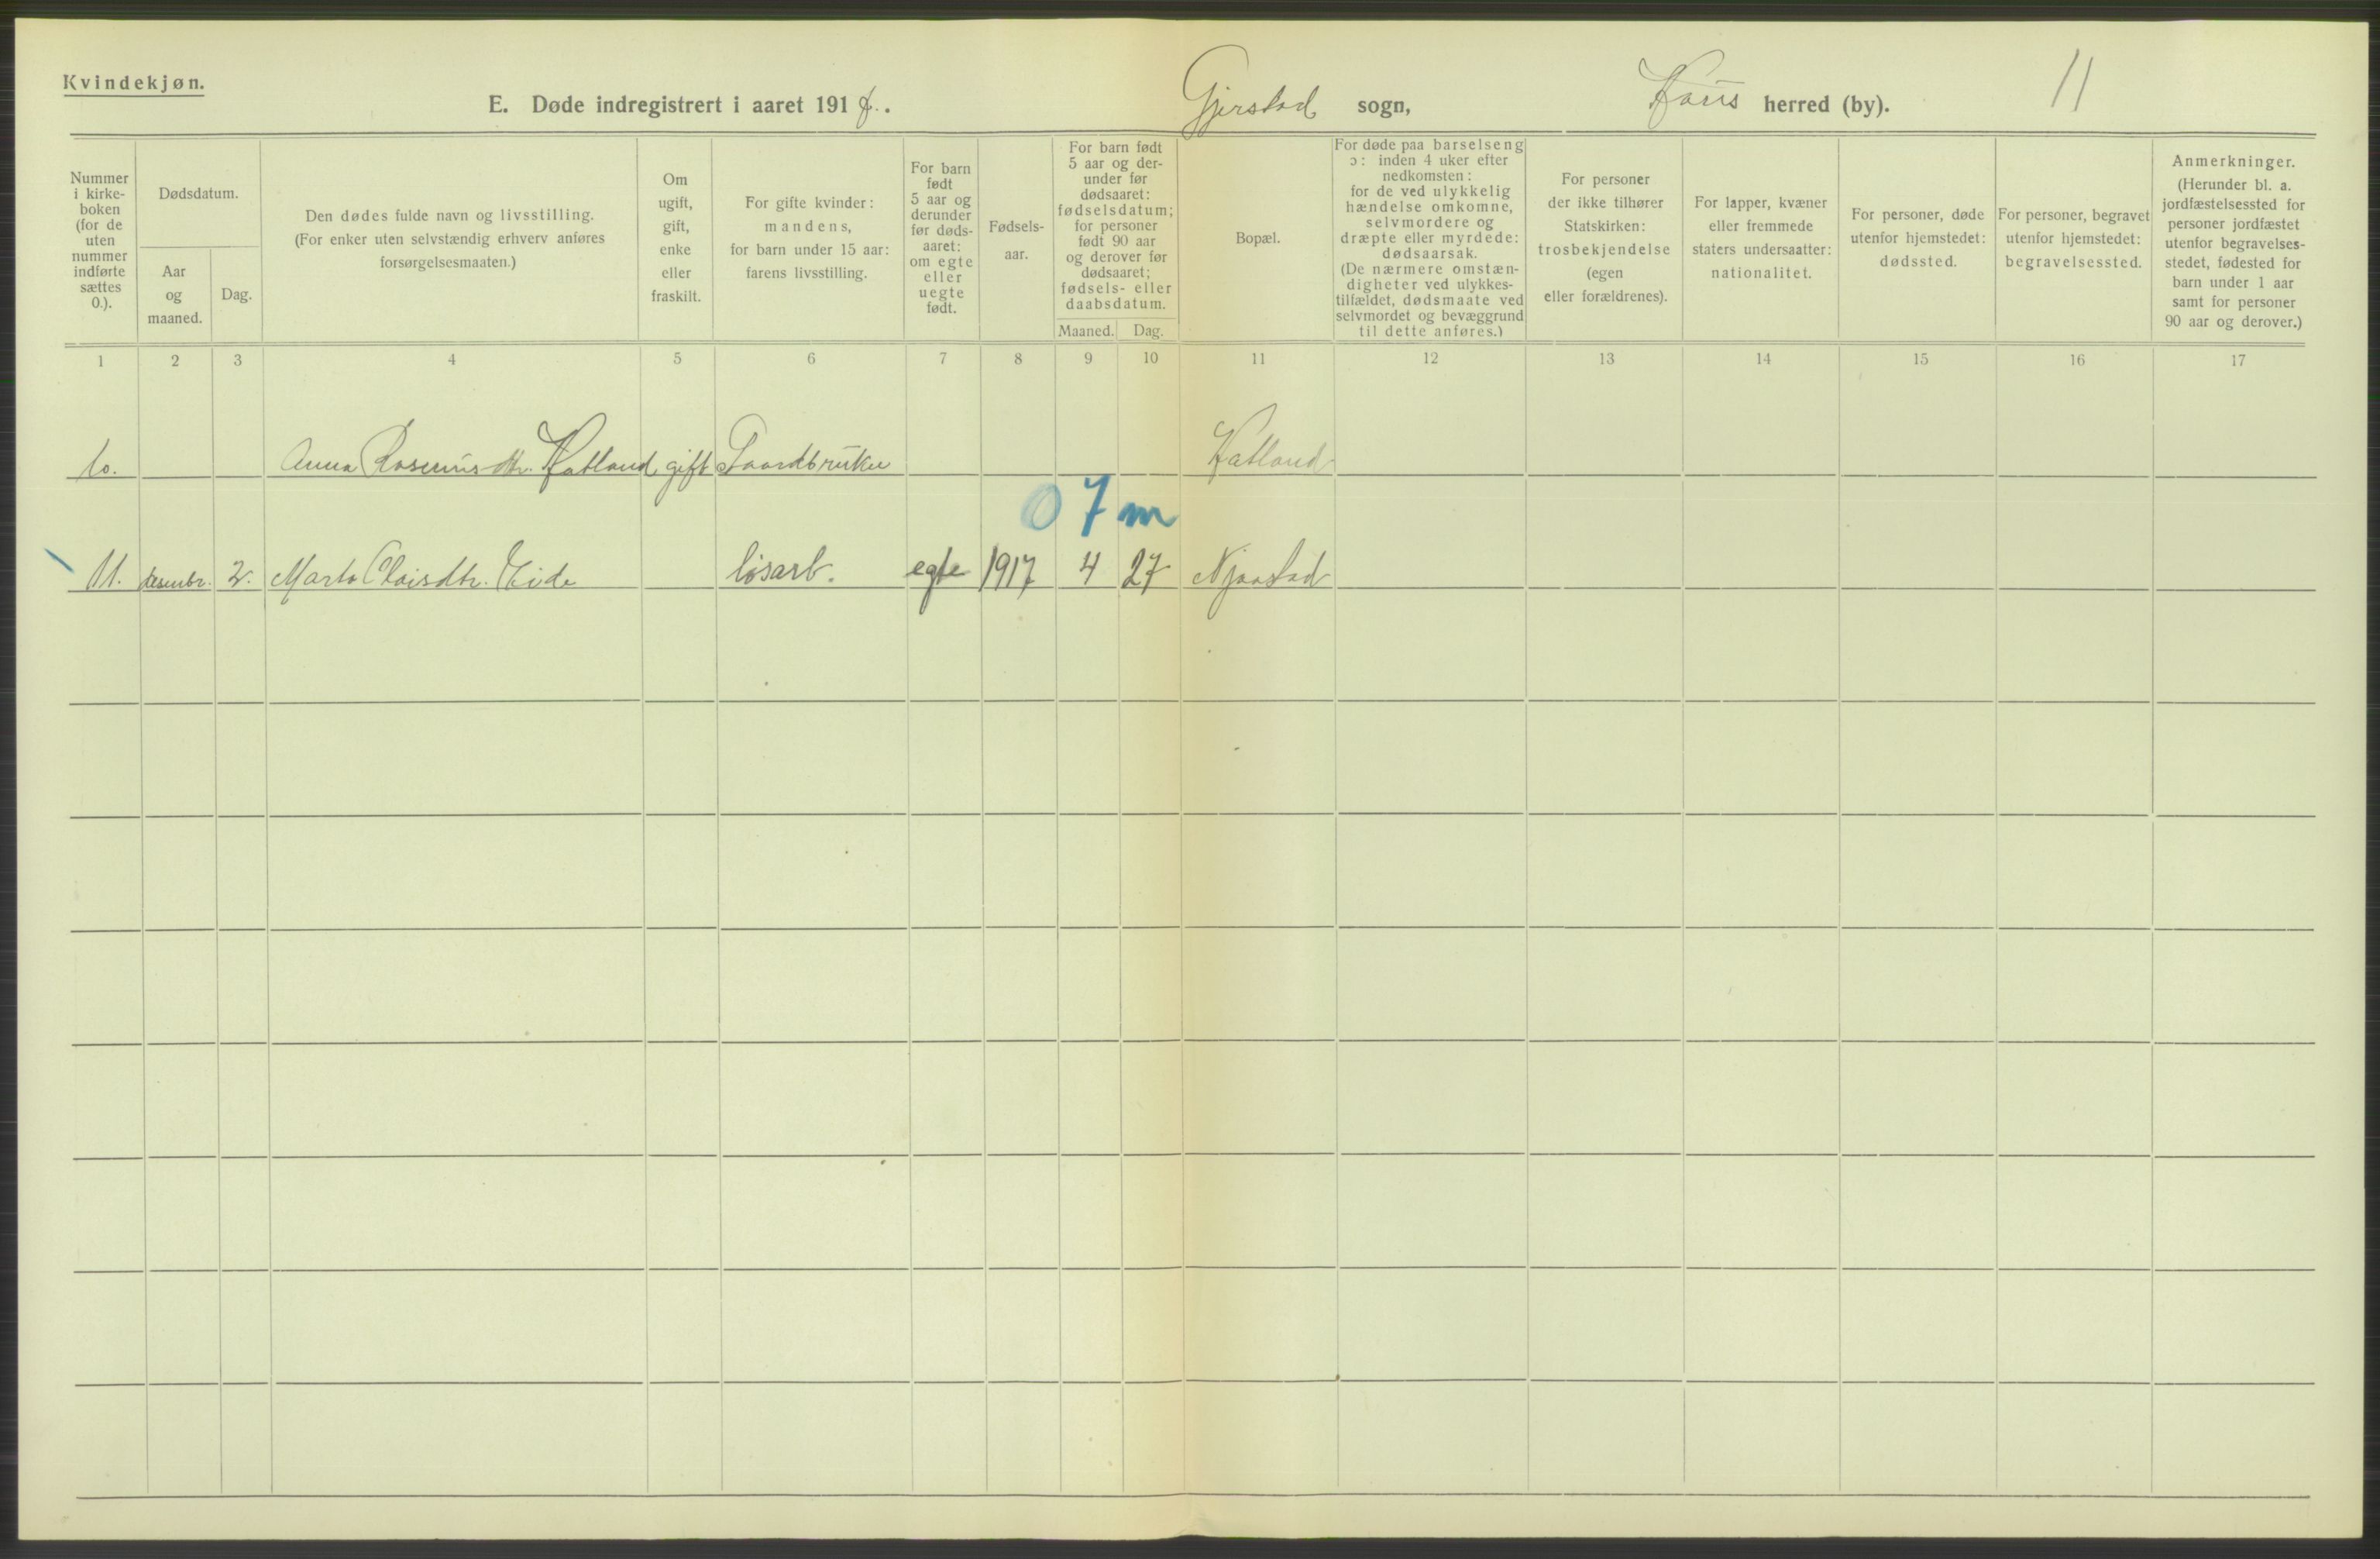 Kvindekjøn.
E. Døde indregistrert i aaret 1917. Gjerstad sogn, Haus herred (by). 11
Nummer i kirke- boken (for de uten nummer indførte sættes 0.).
Dødsdatum.
Aar og maaned.
Dag.
Den dødes fulde navn og livsstilling.
(For enker uten selvstændig erhverv anføres forsørgelsesmaaten.)
Om ugift, gift, enke eller fraskilt.
For gifte kvinder: mandens, for barn under 15 aar: farens livsstilling.
For barn født 5 aar og derunder før døds- aaret: om egte eller uegte født.
Fødsels- aar.
For barn født 5 aar og der- under før dødsaaret: fødselsdatum; for personer født 90 aar og derover før dødsaaret; fødsels- eller daabsdatum.
Maaned. Dag.
Bopæl.
For døde paa barselseng ɔ: inden 4 uker efter nedkomsten: for de ved ulykkelig hændelse omkomne, selvmordere og dræpte eller myrdede: dødsaarsak. (De nærmere omstæn- digheter ved ulykkes- tilfældet, dødsmaate ved selvmordet og bevæggrund til dette anføres.)
For personer der ikke tilhører Statskirken: trosbekjendelse (egen eller forældrenes).
For lapper, kvæner eller fremmede staters undersaatter: nationalitet.
For personer, døde utenfor hjemstedet: dødssted.
For personer, begravet utenfor hjemstedet: begravelsessted.
Anmerkninger. (Herunder bl. a. jordfæstelsessted for personer jordfæstet utenfor begravelses- stedet, fødested for barn under 1 aar samt for personer 90 aar og derover.)
1 2 3 4 5 6 7 8 9 10 11 12 13 14 15 16 17
10. Anna Rasmusdtr. Hatland gift Gaardbruker Hatland
0 7 m
11. desembr. 2. Marta Olaisdtr. Eide løsarb. egte 1917 4 27 Njaastad